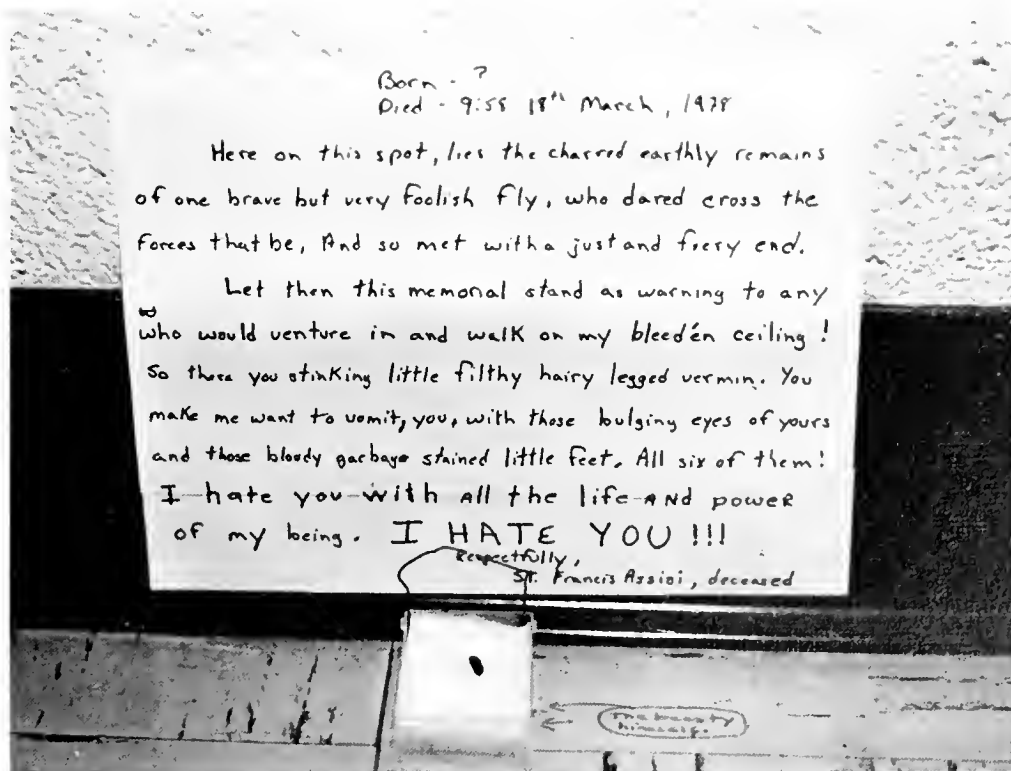 Born - ?
Died - 9:58 18th March, 1978
Here on this spot, lies the charred earthly remains
of one brave but very foolish fly, who dared cross the
forces that be, And so met with a just and firey end.
Let then this memorial stand as warning to any
who would venture in and walk on my bleed'en ceiling!
So there you stinking little filthy hairy legged vermin. You
make me want to vomit, you, with those bulging eyes of yours
and those bloody garbage stained little feet. All six of them!
I hate you with all the life AND power
of my being. I HATE YOU!!!
Respectfully,
St. Francis Assisi, deceased
The beasty
himself.